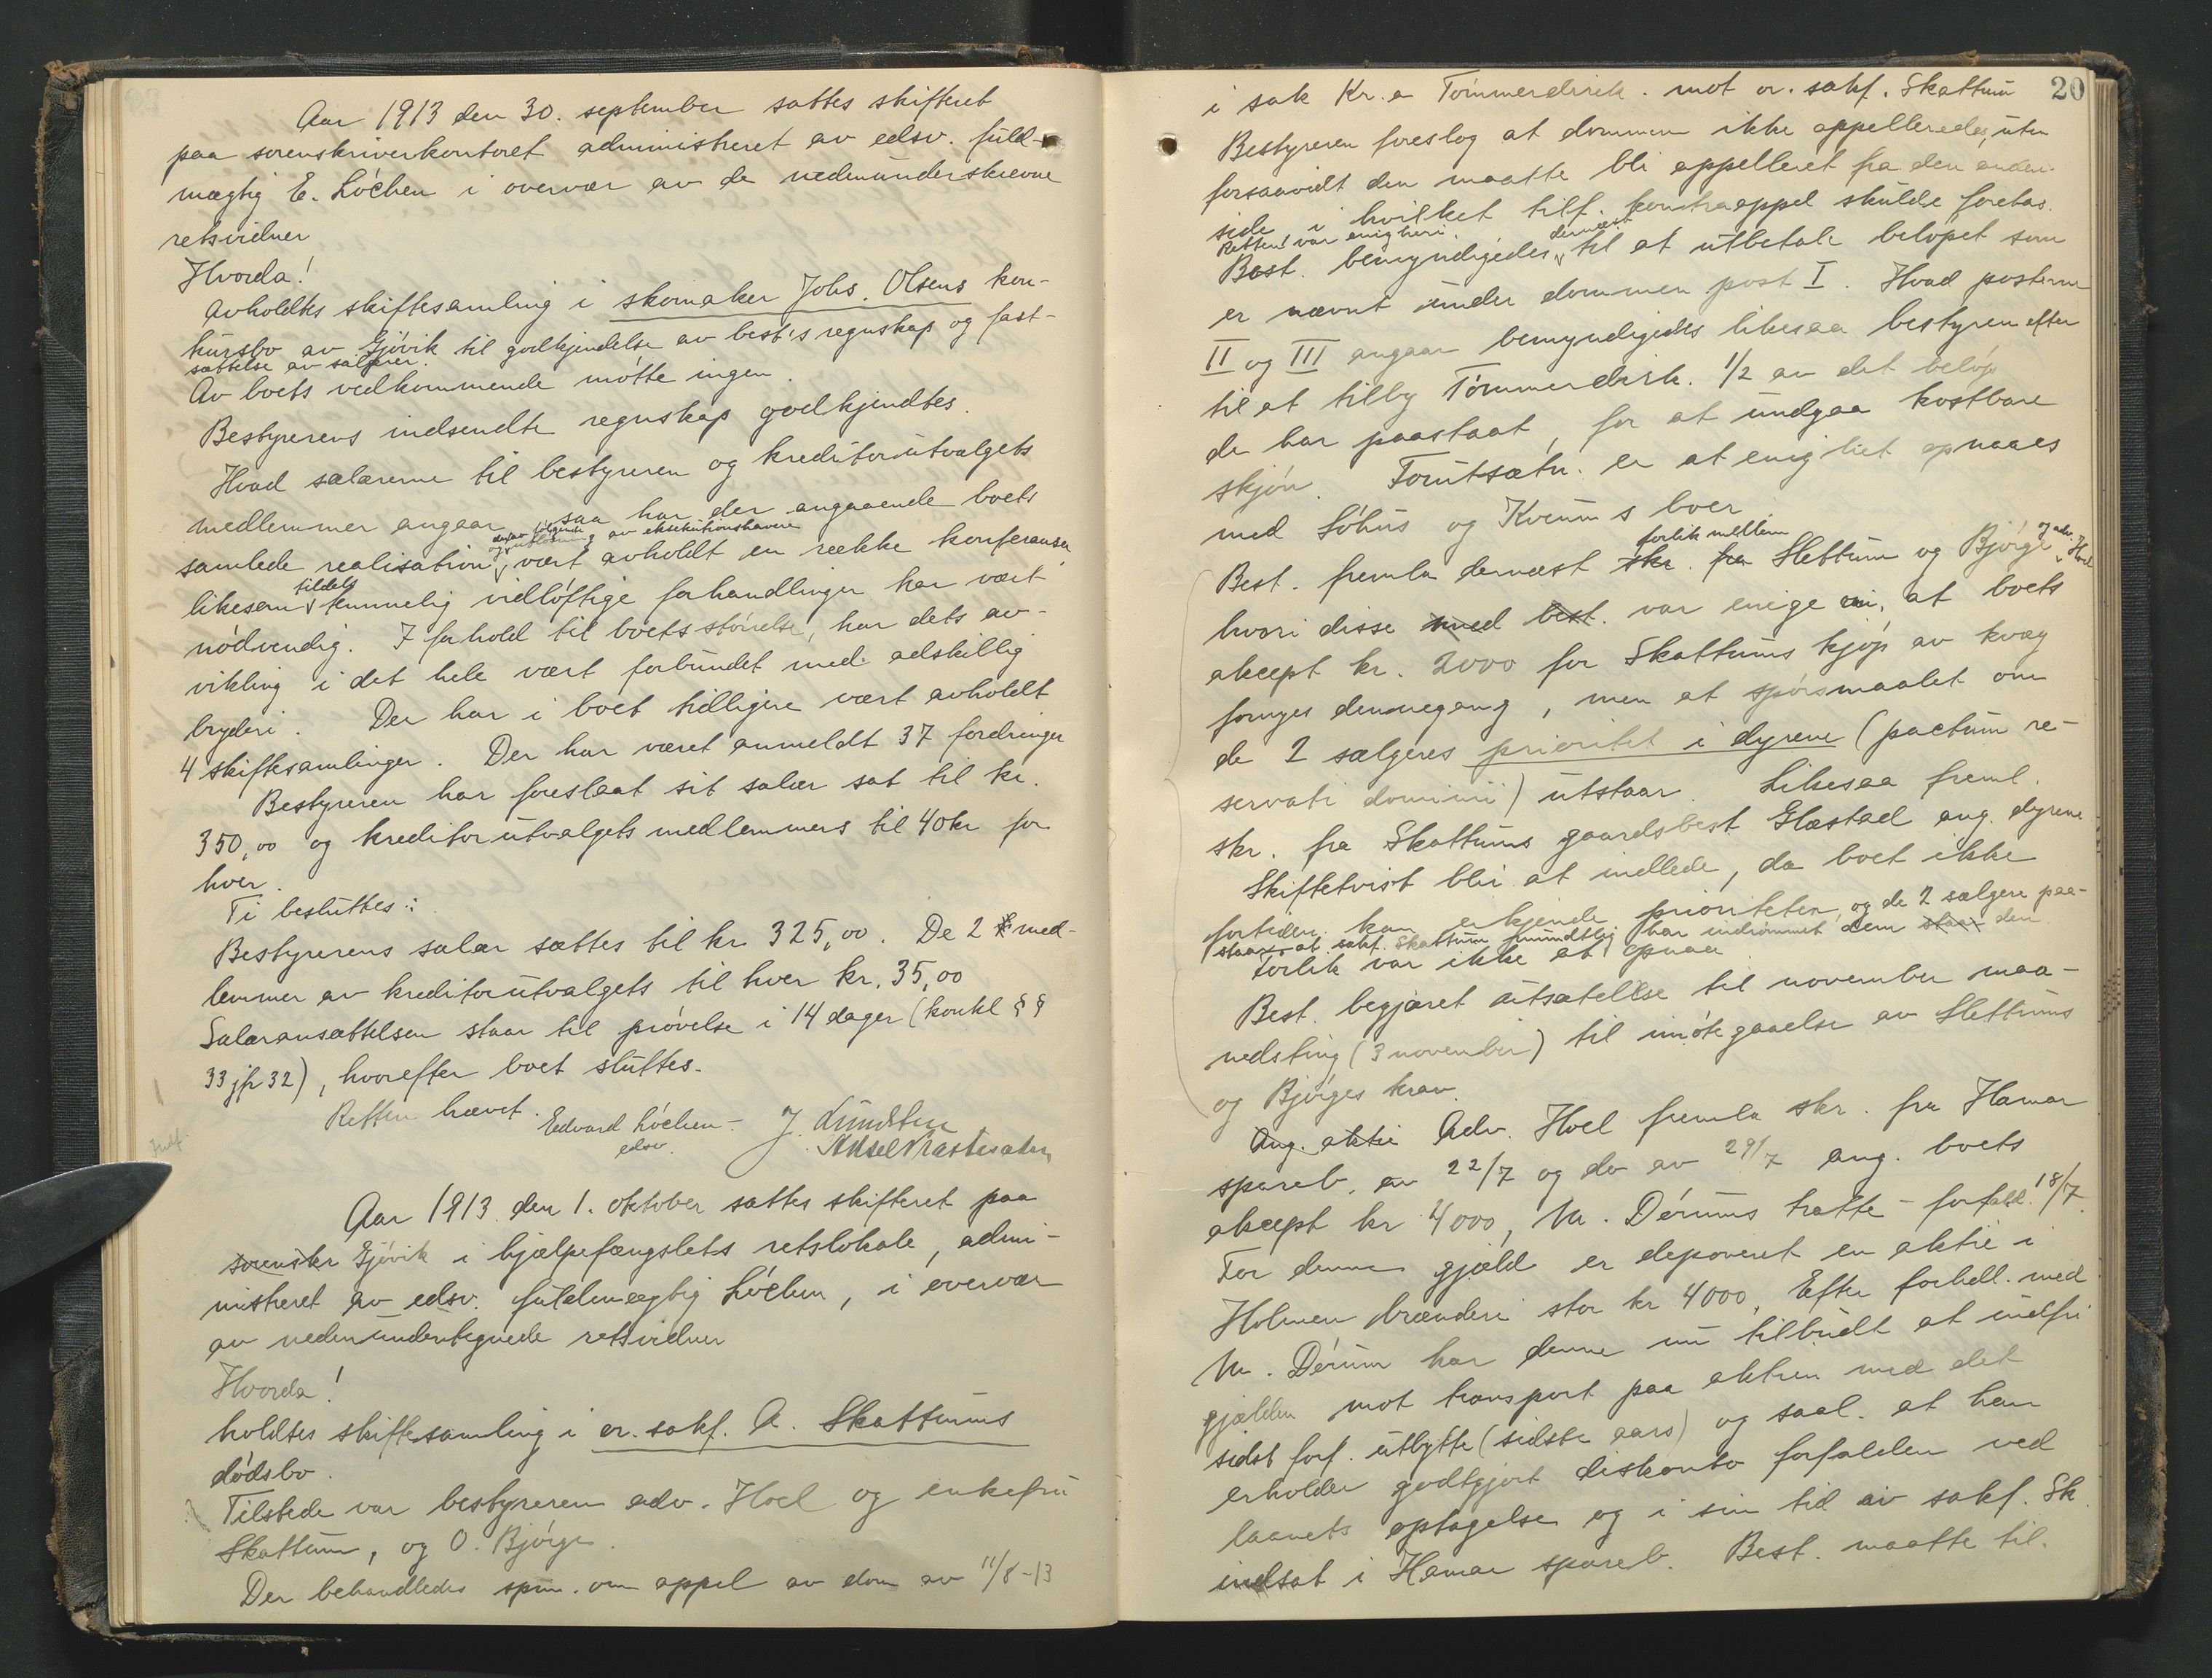 Aar 1913 den 30. september sattes skifteret
paa sorenskriverkontoret administreret av edsv. fuld-
mægtig E. Löchen i overvær av de nedenunderskrevne
retsvidner
Hvorda!
Avholdtes skiftesamling i skomaker Johs. Olsens kon-
kursbo av Gjövik til godkjendelse av best's regnskap og fast-
sættelse av salærer.
Av boets vedkommende mötte ingen.
Bestyrerens indsendte regnskap godkjendtes.
Hvad salærerne til bestyreren og kreditorutvalgets
medlemmer angaar, saa har der angaaende boets
av eksekutionshavere
samlede realisation vært avholdt en række konferanser
tildels
likesom temmelig vidlöftige forhandlinger har vært
nödvendig. I forhold til boets störrelse, har dets av-
vikling i det hele vært forbundet med adskillig
bryderi. Der har i boet tidligere vært avholdt
4 skiftesamlinger. Der har været anmeldt 37 fordringer
Bestyreren har foreslaat sit salær sat til kr.
350,00 og kreditorutvalgets medlemmers til 40 kr for
hver.
Ti besluttes:
Bestyrerens salær sættes til kr 325,00. De 2 med-
lemmer av kreditorutvalgets til hver kr. 35,00
Salæransættelsen staar til prövelse i 14 dager (konkl §§
33 jfr 32), hvorefter boet sluttes.
Retten hævet.
Edvard Löchen
edsv.
J. Lundsten
Aar 1913 den 1. oktober sattes skifteret paa
sorenskr Gjövik i hjælpefængslets retslokale, admi-
nistreret av edsv. fuldmægtig Löchen, i overvær
av nedenundertegnede retsvidner
Hvorda!
holdtes skiftesamling i or. sakf. A. Skattums
dödsbo.
Tilstede var bestyreren adv. Hoel og enkefru
Skattum, og O. Björge.
Der behandledes spm. om appel av dom av 11/8-13
20
i sak Kr.a Tömmerdirek. mot or. sakf. Skattum
Bestyreren foreslog at dommen ikke appelleredes, uten
forsaavidt den maatte bli appelleret fra den anden
side i hvilket tilf. kontraappel skulde foretas.
Retten var enig heri. dernæst
Best. bemyndigedes til at utbetale belöpet som
er nævnt under dommen post I. Hvad posterne
II og III angaar bemyndigedes likesaa bestyreren efter
til at tilby Tömmerdirk. 1/2 av det belöp
de har paastaat, for at undgaa kostbare
skjön. Forutsætn. er at enighet opnaaes
med Löhus og Kvems boer
forlik mellem og adv. Hoel
Best. fremla dernæst skr. fra Slettum og Björge
hvori disse med best. var enige om, at boets
aksept kr. 2000 for Skattums kjöp av kvæg
fornyes dennegang, men at spörsmaalet om
de 2 sælgeres prioritet i dyrene (pactum re-
servati dominii) utstaar. Likesaa freml.
skr. fra Skattums gaardsbest Glæstad ang. dyrene
Skiftetvist blir at indlede, da boet ikke
fortiden kan erkjende prioriteten, og de 2 sælgere paa-
staar at sakf. Skattum mundtlig har indrömmet dem staar den
Forlik var ikke at opnaa
Best. begjæret utsættelse til november maa-
nedsting (3 november) til imötegaaelse av Slettums
og Björges krav.
Ang. aktie Adv. Hoel fremla skr. fra Hamar
spareb. av 22/7 og do av 29/7 ang. boets
aksept kr 4000, M. Dörums tratte - forfald. 18/7.
For denne gjæld er deponeret en aktie i
Holmen brænderi stor kr 4000. Efter forhdl. med
M. Dörum har denne nu tilbudt at indfri
gjælden mot transport paa aktien med det
sidst forf. utbytte (sidste aars) og saal. at han
erholder godtgjort diskonto forfalden ved
laanets optagelse og i sin tid av sakf. Sk.
indsat i Hamar spareb. Best. maatte til-